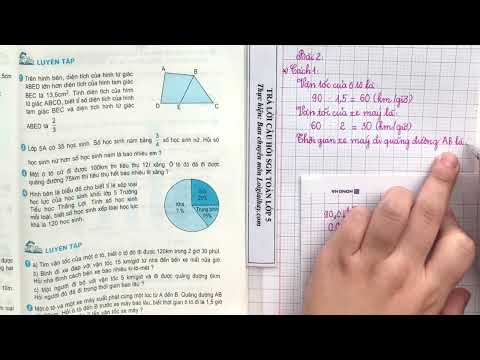 LUYỆN TẬP
Trên hình bên, diện tích của hình tứ giác
ABED lớn hơn diện tích của hình tam giác
BEC là 13,6cm². Tính diện tích của hình
tứ giác ABCD, biết tỉ số diện tích của hình
tam giác BEC và diện tích hình tứ giác
ABED là 2/3
A
B
D
E
C
Lớp 5A có 35 học sinh. Số học sinh nam bằng 3/4 số học sinh nữ. Hỏi số
học sinh nữ hơn số học sinh nam là bao nhiêu em ?
Một ô tô cứ đi được 100km thì tiêu thụ 12l xăng. Ô tô đó đã đi được
quãng đường 75km thì tiêu thụ hết bao nhiêu lít xăng ?
Hình bên là biểu đồ cho biết tỉ lệ xếp loại
học lực của học sinh khối lớp 5 Trường
Tiểu học Thắng Lợi. Tính số học sinh
mỗi loại, biết số học sinh xếp loại học lực
khá là 120 học sinh.
Giỏi
25%
Khá
?%
Trung bình
15%
LUYỆN TẬP
a) Tính vận tốc của một ô tô, biết ô tô đó đi được 120km trong 2 giờ 30 phút.
b) Bình đi xe đạp với vận tốc 15 km/giờ từ nhà đến bến xe mất nửa giờ.
Hỏi nhà Bình cách bến xe bao nhiêu ki-lô-mét ?
c) Một người đi bộ với vận tốc 5 km/giờ và đi được quãng đường 6km.
Hỏi người đó đã đi trong thời gian bao lâu ?
Một ô tô và một xe máy xuất phát cùng một lúc từ A đến B. Quãng đường AB
TRẢ LỜI CÂU HỎI SGK TOÁN LỚP 5
Thực hiện: Ban chuyên môn Loigiaihay.com
Bài 2:
*) Cách 1:
Vận tốc của ô tô là
90 : 1,5 = 60 (km/giờ)
Vận tốc của xe máy là:
60 : 2 = 30 (km/giờ)
Thời gian xe máy đi quãng đường AB là